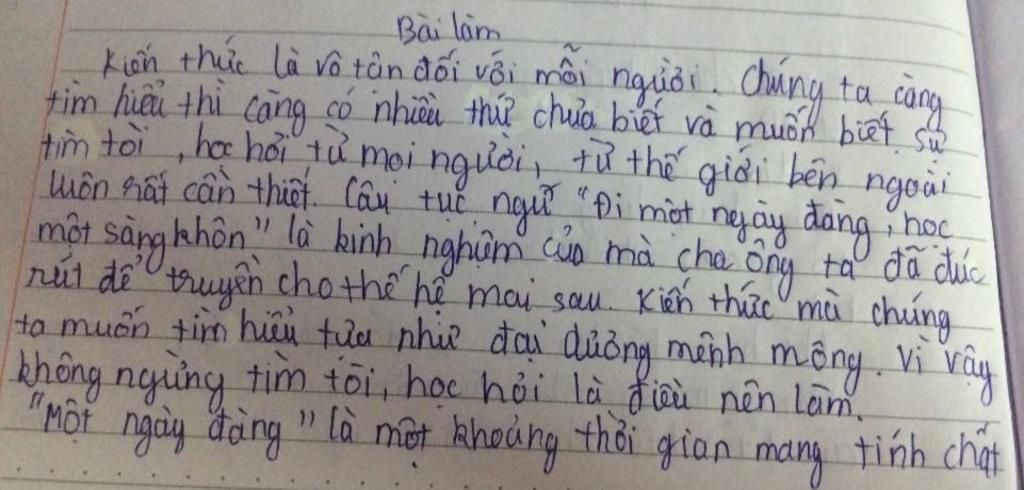 Bài làm
Kiến thức là vô tận đối với mỗi người. Chúng ta càng
tìm hiểu thì càng có nhiều thứ chưa biết và muốn biết. Sự
tìm tòi, học hỏi từ mọi người, từ thế giới bên ngoài
luôn rất cần thiết. Câu tục ngữ "Đi một ngày đàng, học
một sàng khôn" là kinh nghiệm của mà cha ông ta đã đúc
rút để truyền cho thế hệ mai sau. Kiến thức mà chúng
ta muốn tìm hiểu tựa như đại dương mênh mông. Vì vậy
không ngừng tìm tòi, học hỏi là điều nên làm.
"Một ngày đàng" là một khoảng thời gian mang tính chất